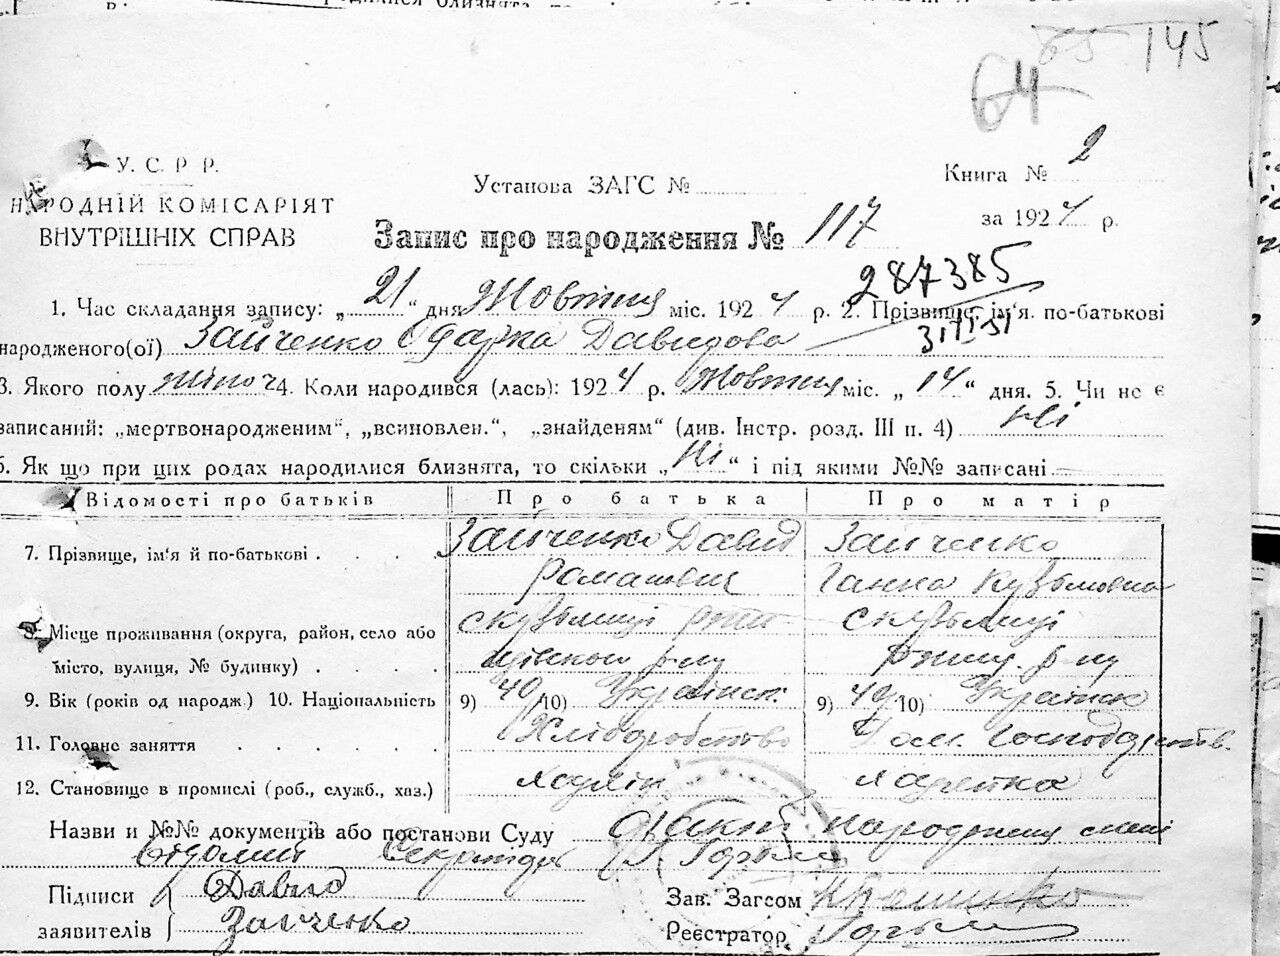 65 145
64
У. С. Р Р.
НАРОДНІЙ КОМІСАРІЯТ
ВНУТРІШНІХ СПРАВ
Установа ЗАГС №
Книга № 2
за 1924 р.
Запис про народження № 117
287385
1. Час складання запису: „21“ дня Жовтня міс. 1924 р. 2. Прізвище, ім‘я по-батькові
народженого(ої) Зайченко Одарка Давидова
3. Якого полу жіноч 4. Коли народився (лась): 1924 р. Жовтня міс. „14“ дня. 5. Чи не є
записаний: „мертвонародженим“, „всиновлен.“, „знайденям“ (див. Інстр. розд. III п. 4) Ні
6. Як що при цих родах народилися близнята, то скільки „Ні“ і під якими №№ записані
Відомості про батьків Про батька Про матір
7. Прізвище, ім‘я й по-батькові . . . . Зайченко Давид Зайченко
Романович Ганна Кузьмовна
8. Місце проживання (округа, район, село або с Кузьминці с Кузьминці
місто, вулиця, № будинку) . . . . р-ну р-ну
9. Вік (років од народж) 10. Національність 9) 40 10) Українск. 9) 40 10) Українск
11. Головне заняття . . . . . Хліборобство Дом. Господарств.
12. Становище в промислі (роб., служб., хаз.) Хазяїн Хазяйка
Назви и №№ документів або постанови Суду факт народження мені
відомий Секретар
Підписи Давид Зав. Загсом
заявителів Зайченко Реєстратор